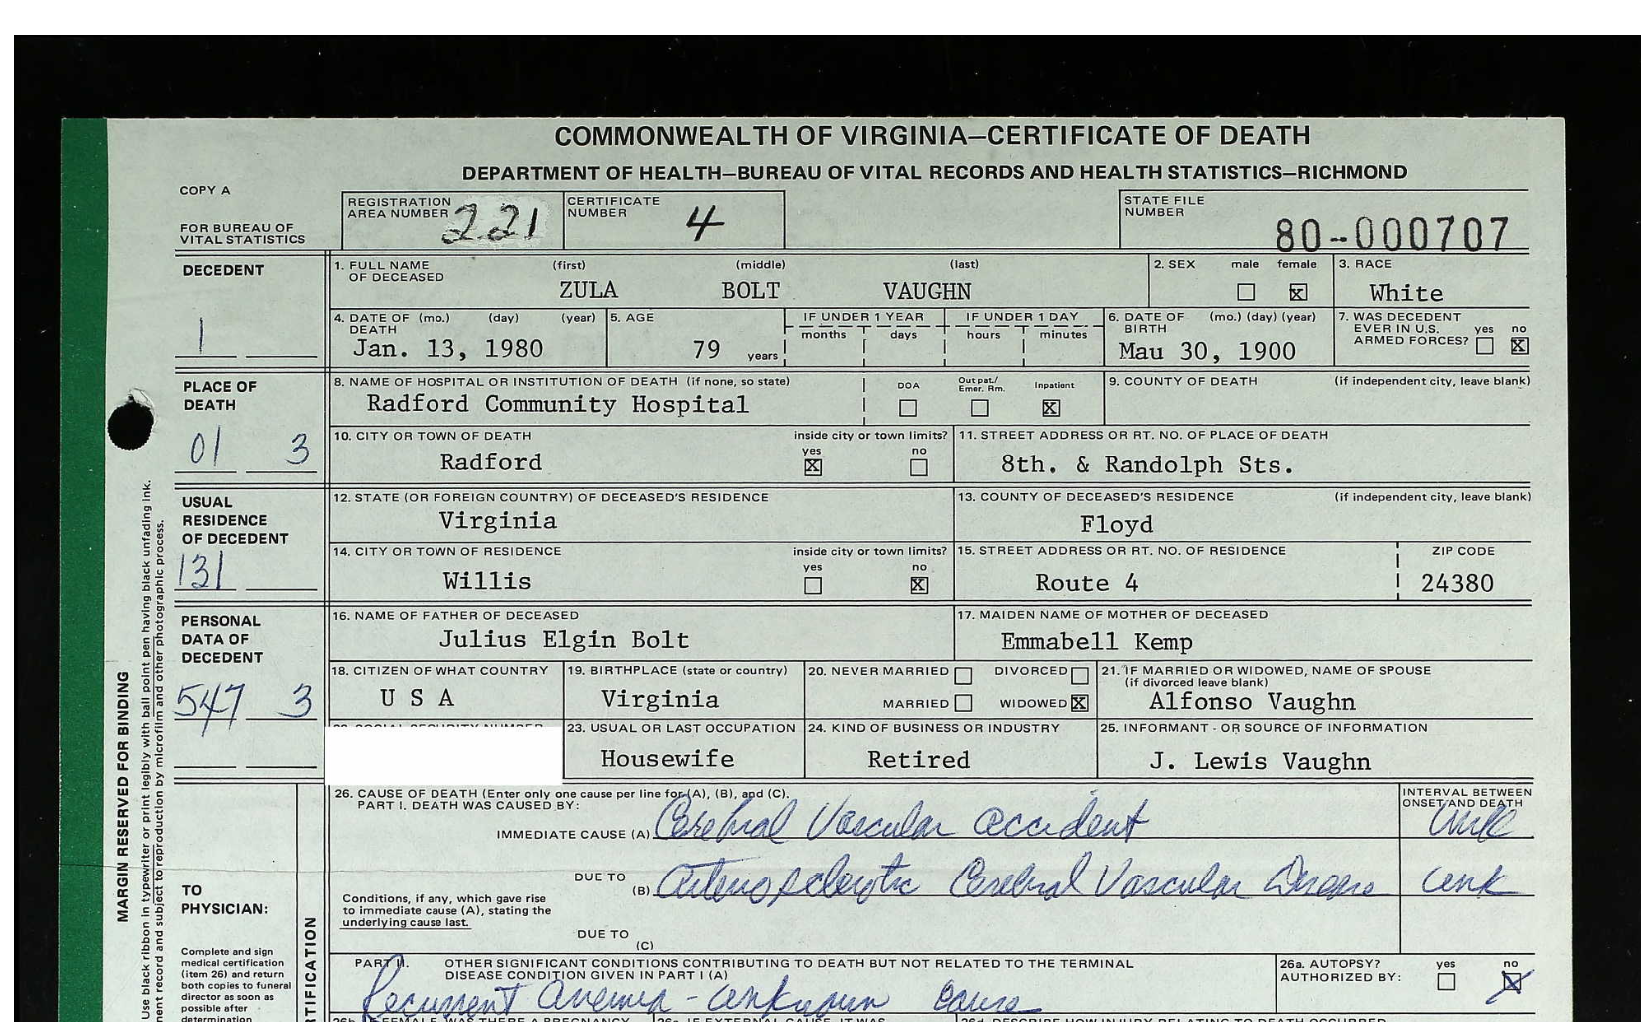 COMMONWEALTH OF VIRGINIA—CERTIFICATE OF DEATH
DEPARTMENT OF HEALTH—BUREAU OF VITAL RECORDS AND HEALTH STATISTICS—RICHMOND
COPY A
FOR BUREAU OF VITAL STATISTICS
REGISTRATION AREA NUMBER 221
CERTIFICATE NUMBER 4
STATE FILE NUMBER 80-000707
DECEDENT
1
1. FULL NAME OF DECEASED (first) (middle) (last)
ZULA BOLT VAUGHN
2. SEX male female X
3. RACE White
4. DATE OF DEATH (mo.) (day) (year)
Jan. 13, 1980
5. AGE 79 years
IF UNDER 1 YEAR months days
IF UNDER 1 DAY hours minutes
6. DATE OF BIRTH (mo.) (day) (year)
Mau 30, 1900
7. WAS DECEDENT EVER IN U.S. ARMED FORCES? yes no X
PLACE OF DEATH
01 3
8. NAME OF HOSPITAL OR INSTITUTION OF DEATH (if none, so state)
Radford Community Hospital
DOA Out pat./ Emer. Rm. Inpatient X
9. COUNTY OF DEATH (if independent city, leave blank)
10. CITY OR TOWN OF DEATH
Radford
inside city or town limits? yes X no
11. STREET ADDRESS OR RT. NO. OF PLACE OF DEATH
8th. & Randolph Sts.
USUAL RESIDENCE OF DECEDENT
131
12. STATE (OR FOREIGN COUNTRY) OF DECEASED'S RESIDENCE
Virginia
13. COUNTY OF DECEASED'S RESIDENCE (if independent city, leave blank)
Floyd
14. CITY OR TOWN OF RESIDENCE
Willis
inside city or town limits? yes no X
15. STREET ADDRESS OR RT. NO. OF RESIDENCE
Route 4
ZIP CODE
24380
PERSONAL DATA OF DECEDENT
547 3
16. NAME OF FATHER OF DECEASED
Julius Elgin Bolt
17. MAIDEN NAME OF MOTHER OF DECEASED
Emmabell Kemp
18. CITIZEN OF WHAT COUNTRY
U S A
19. BIRTHPLACE (state or country)
Virginia
20. NEVER MARRIED DIVORCED
MARRIED WIDOWED X
21. IF MARRIED OR WIDOWED, NAME OF SPOUSE (if divorced leave blank)
Alfonso Vaughn
23. USUAL OR LAST OCCUPATION
Housewife
24. KIND OF BUSINESS OR INDUSTRY
Retired
25. INFORMANT - OR SOURCE OF INFORMATION
J. Lewis Vaughn
26. CAUSE OF DEATH (Enter only one cause per line for (A), (B), and (C).
PART I. DEATH WAS CAUSED BY:
INTERVAL BETWEEN ONSET AND DEATH
IMMEDIATE CAUSE (A) Cerebral Vascular accident unk
DUE TO (B) arteriosclerotic Cerebral Vascular Disease unk
Conditions, if any, which gave rise to immediate cause (A), stating the underlying cause last.
DUE TO (C)
PART II. OTHER SIGNIFICANT CONDITIONS CONTRIBUTING TO DEATH BUT NOT RELATED TO THE TERMINAL DISEASE CONDITION GIVEN IN PART I (A)
Recurrent anemia - unknown cause
26a. AUTOPSY? AUTHORIZED BY: yes no X
TO PHYSICIAN:
Complete and sign
medical certification
(item 26) and return
both copies to funeral
director as soon as
possible after
determination
MARGIN RESERVED FOR BINDING
Use black ribbon in typewriter or print legibly with ball point pen having black unfading ink.
nent record and subject to reproduction by microfilm and other photographic process.
RTIFICATION